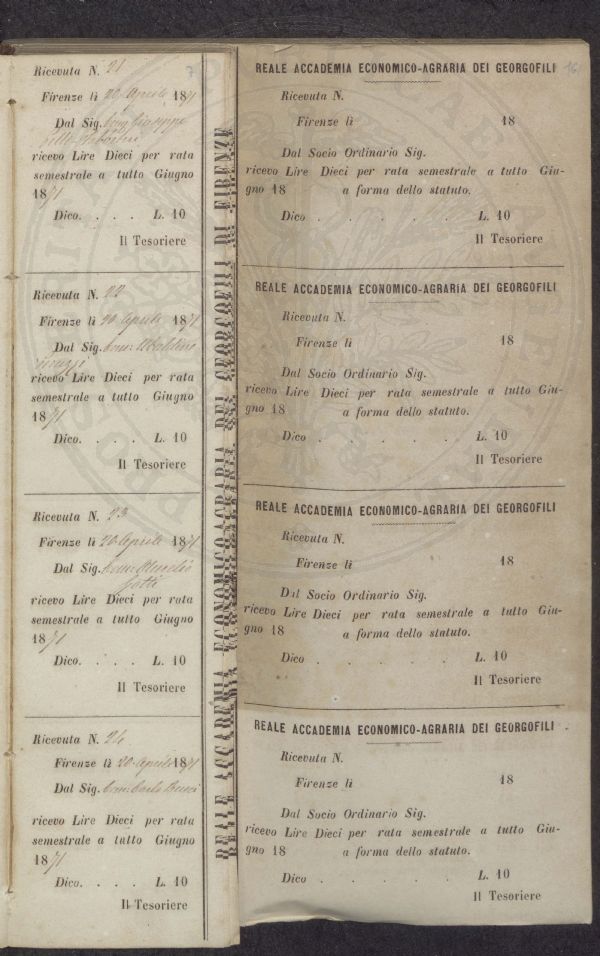 Ricevuta N. 21
Firenze lì 20 Aprile 1871
Dal Sig.
ricevo Lire Dieci per rata
semestrale a tutto Giugno
1871
Dico. . . . L. 10
Il Tesoriere
Ricevuta N. 22
Firenze lì 20 Aprile 1871
Dal Sig. Com: Ubaldino
Peruzzi
ricevo Lire Dieci per rata
semestrale a tutto Giugno
1871
Dico. . . . L. 10
Il Tesoriere
Ricevuta N. 23
Firenze lì 20 Aprile 1871
Dal Sig. Com: Aurelio
Gotti
ricevo Lire Dieci per rata
semestrale a tutto Giugno
1871
Dico. . . . L. 10
Il Tesoriere
Ricevuta N. 24
Firenze lì 20 Aprile 1871
Dal Sig. Com: Carlo
ricevo Lire Dieci per rata
semestrale a tutto Giugno
1871
Dico. . . . L. 10
Il Tesoriere
REALE ACCADEMIA ECONOMICO-AGRARIA DEI GEORGOFILI DI FIRENZE
REALE ACCADEMIA ECONOMICO-AGRARIA DEI GEORGOFILI
Ricevuta N.
Firenze lì 18
Dal Socio Ordinario Sig.
ricevo Lire Dieci per rata semestrale a tutto Giu-
gno 18 a forma dello statuto.
Dico . . . . L. 10
Il Tesoriere
REALE ACCADEMIA ECONOMICO-AGRARIA DEI GEORGOFILI
Ricevuta N.
Firenze lì 18
Dal Socio Ordinario Sig.
ricevo Lire Dieci per rata semestrale a tutto Giu-
gno 18 a forma dello statuto.
Dico . . . . L. 10
Il Tesoriere
REALE ACCADEMIA ECONOMICO-AGRARIA DEI GEORGOFILI
Ricevuta N.
Firenze lì 18
Dal Socio Ordinario Sig.
ricevo Lire Dieci per rata semestrale a tutto Giu-
gno 18 a forma dello statuto.
Dico . . . . L. 10
Il Tesoriere
REALE ACCADEMIA ECONOMICO-AGRARIA DEI GEORGOFILI
Ricevuta N.
Firenze lì 18
Dal Socio Ordinario Sig.
ricevo Lire Dieci per rata semestrale a tutto Giu-
gno 18 a forma dello statuto.
Dico . . . . L. 10
Il Tesoriere